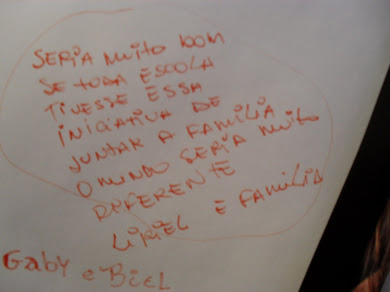 SERIA MUITO BOM
SE TODA ESCOLA
TIVESSE ESSA
INICIATIVA DE
JUNTAR A FAMILIA
O MUNDO SERIA MUITO
DIFERENTE
LIRIEL E FAMILIA
Gaby e Biel